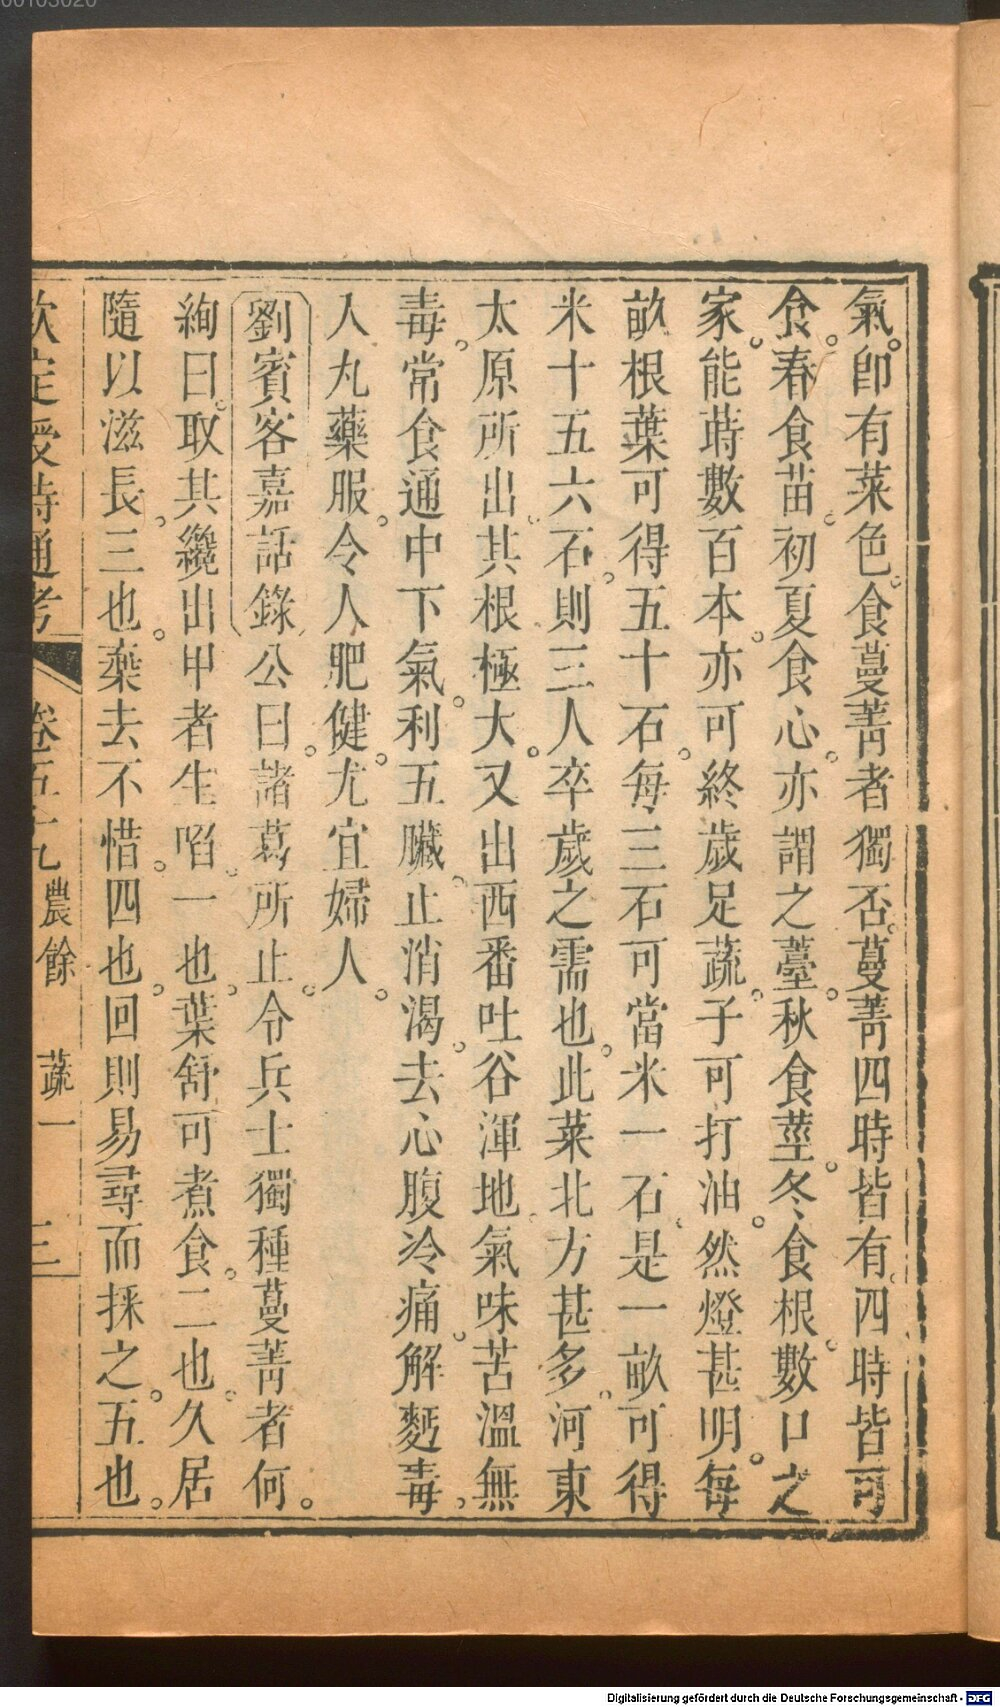 氣。卽有菜色。食蔓菁者獨否。蔓菁四時皆有。四時皆可
食。春食苗。初夏食心。亦謂之薹。秋食莖。冬食根。數口之
家。能蒔數百本。亦可終歲足蔬。子可打油。然燈甚明。每
畝根葉可得五十石。每三石可當米一石。是一畝可得
米十五六石。則三人卒歲之需也。此菜北方甚多。河東
太原所出。其根極大。又出西番吐谷渾地。氣味苦溫無
毒。常食通中下氣。利五臟。止消渴。去心腹冷痛。解麪毒。
人丸藥服。令人肥健。尤宜婦人。
劉賓客嘉話錄公曰。諸葛所止。令兵士獨種蔓菁者何。
絢曰。取其纔出甲者生啗。一也。葉舒可煮食。二也。久居
隨以滋長。三也。棄去不惜。四也。回則易尋而採之。五也。
欽定授時通考 卷五十九 農餘 蔬一 三
00103020
Digitalisierung gefördert durch die Deutsche Forschungsgemeinschaft - DFG